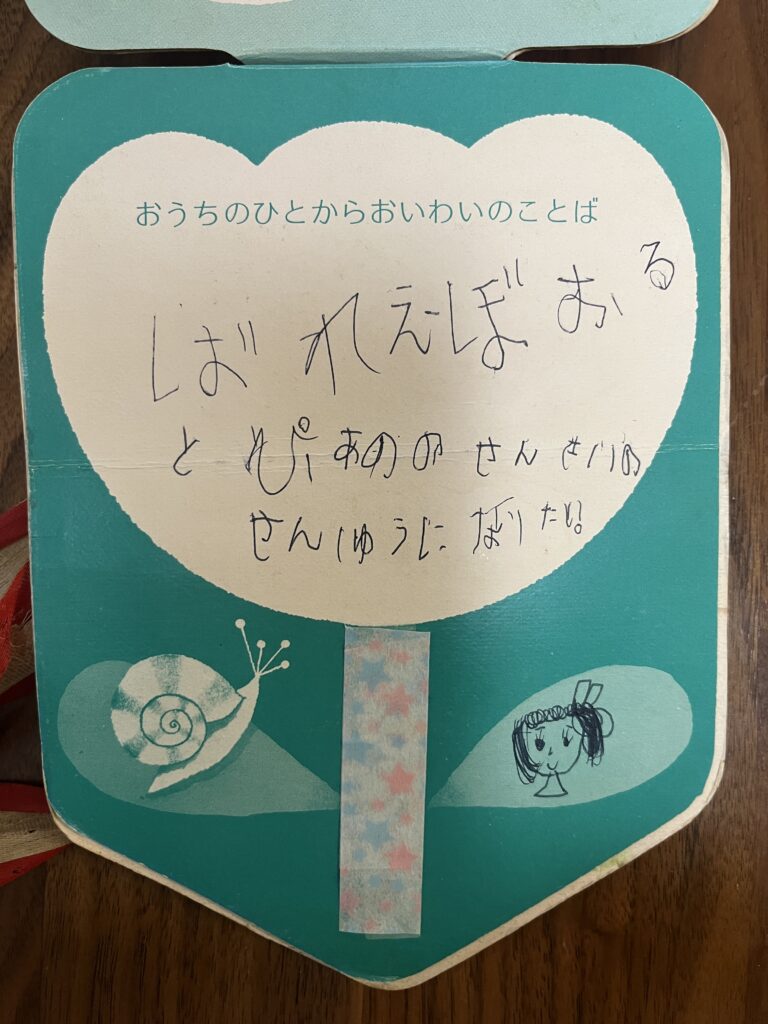 おうちのひとからおいわいのことば
ばれえぼおる
と ぴあのの せんせいの
せんしゅうに なりたい。